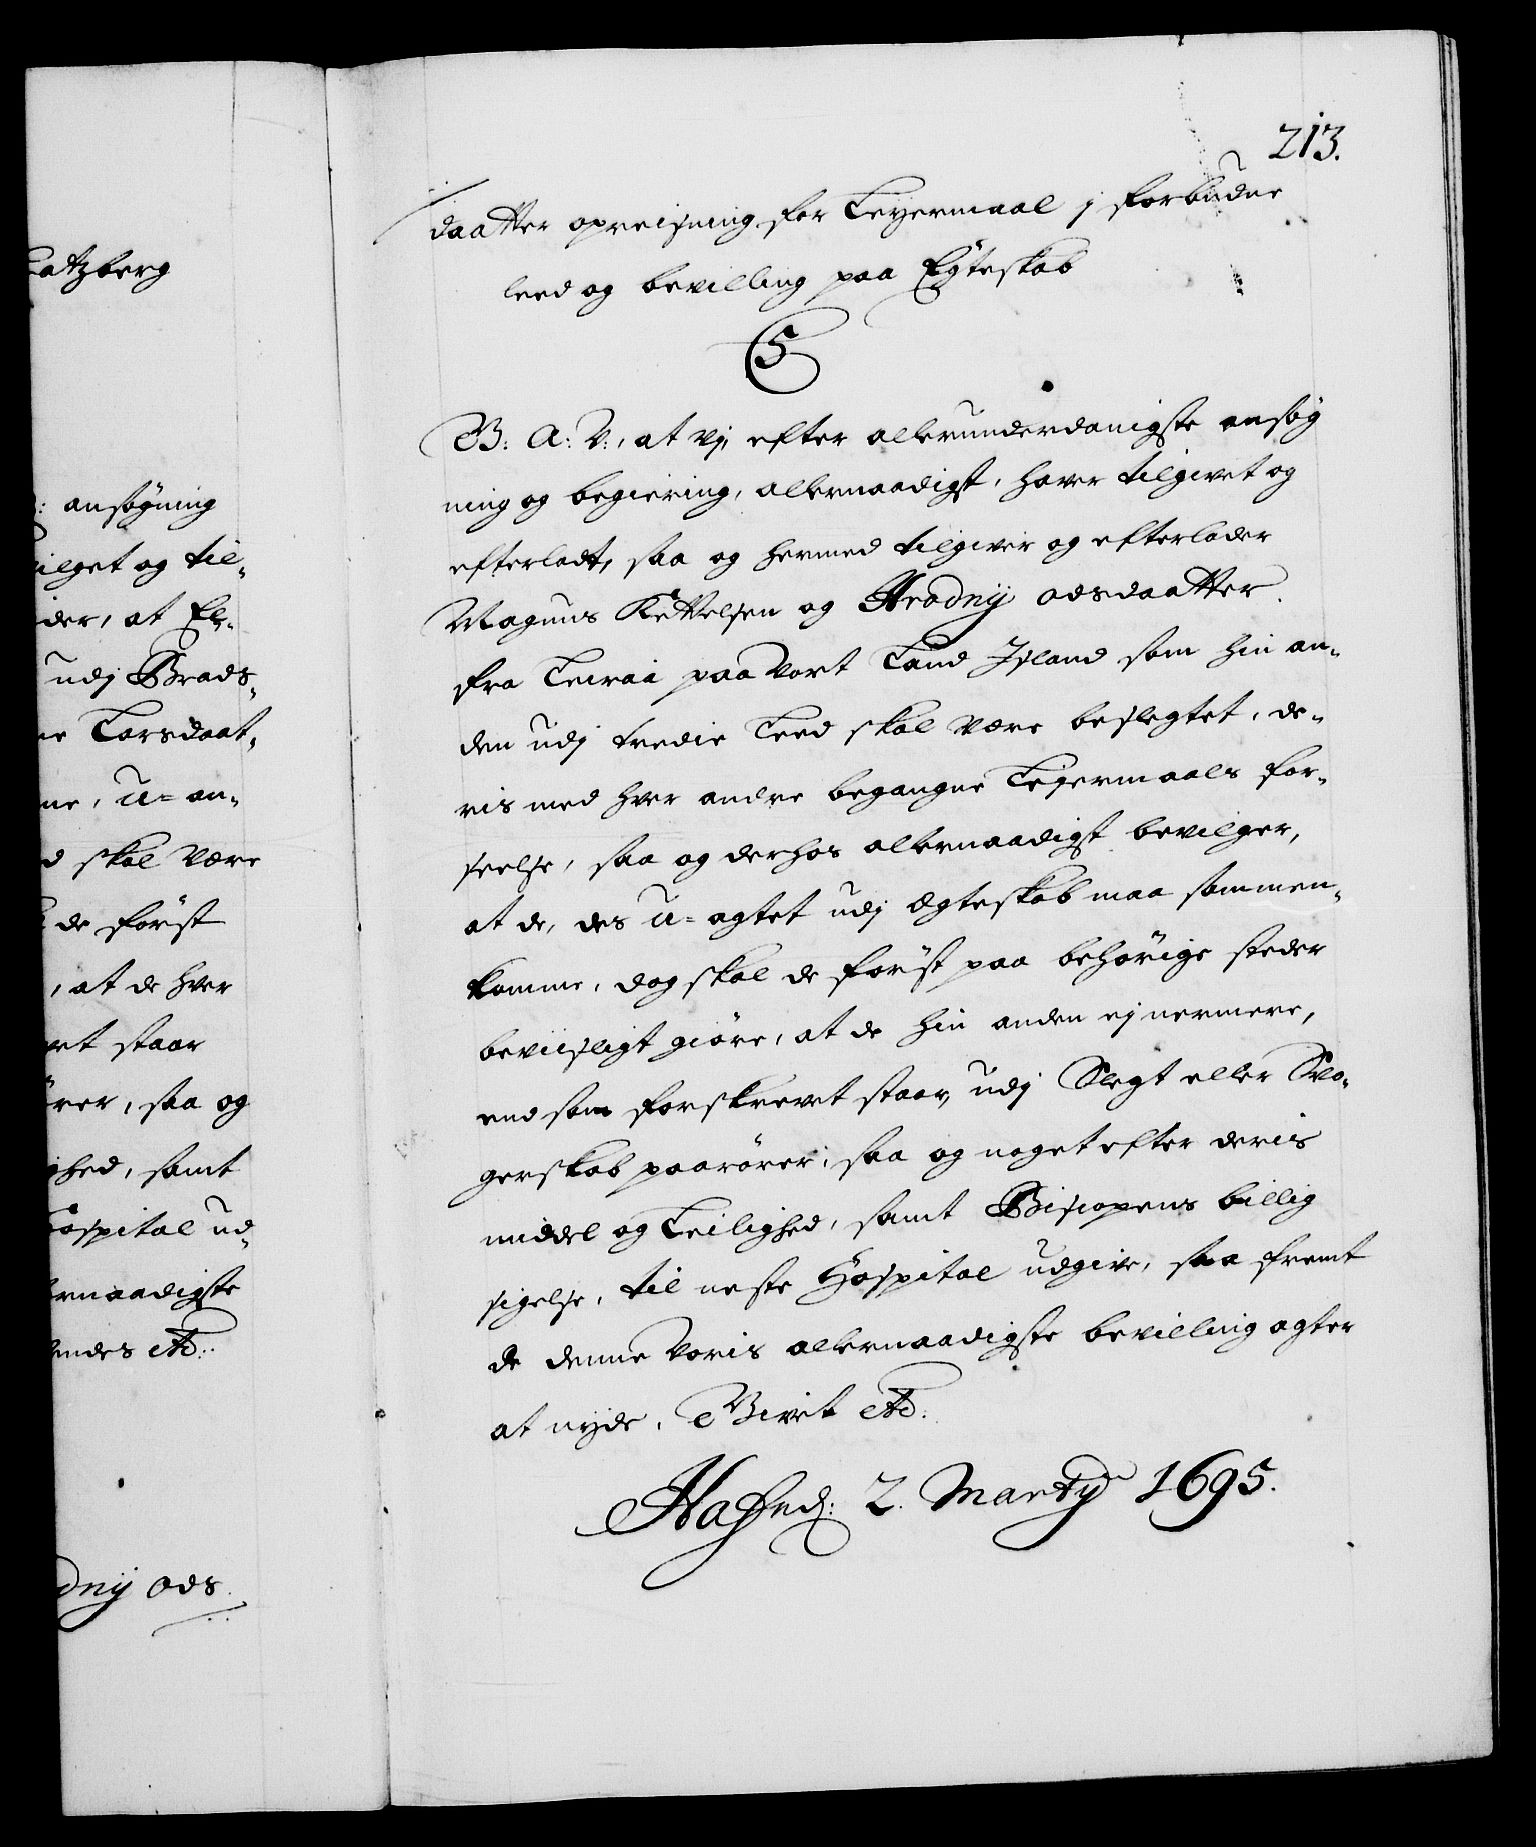 213.
daatter opreisning for Leyermaal j forbudne
leed og bevilling paa Egteskab
5
G: A: V:, at Vj, efter allerunderdanigste ansøg
ning og begiering, allernaadigst, haver tilgivet og
efterladt, saa og hermed tilgiver og efterlader
Magnus Kettelsen og Arodny odsdaatter
fra Leiraa paa Vort Land Jsland som hin an-
den udj tredie Leed skal være beslegtet, de-
ris med hver andre begangne Lejermaals for-
seelse, saa og derhos allernaadigst bevilger,
at de, des u-agtet udj Ægteskab maa sammen-
komme, dog skal de først paa behørige steder
beviisligt giøre, at de hin anden ej nermere,
end som forskrevet staar, udj Slegt eller Svo-
gerskab paarører, saa og noget efter deris
middel og Leilighed, samt Biscopens billig
sigelse, til neste Hospital udgive, saa fremt
de denne Voris allernaadigste bevilling agter
at nyde. Givet etc:
Hafned: 2. Martij 1695.
Ratzberg
: ansøgning
ilget og til-
der, at El-
udj Brads-
ne Larsdaat-
ne, u-an-
d skal være
de først
, at de hver
vet staar
ører, saa og
ghed, samt
Hospital ud-
ernaadigste
endes etc:
dny ods